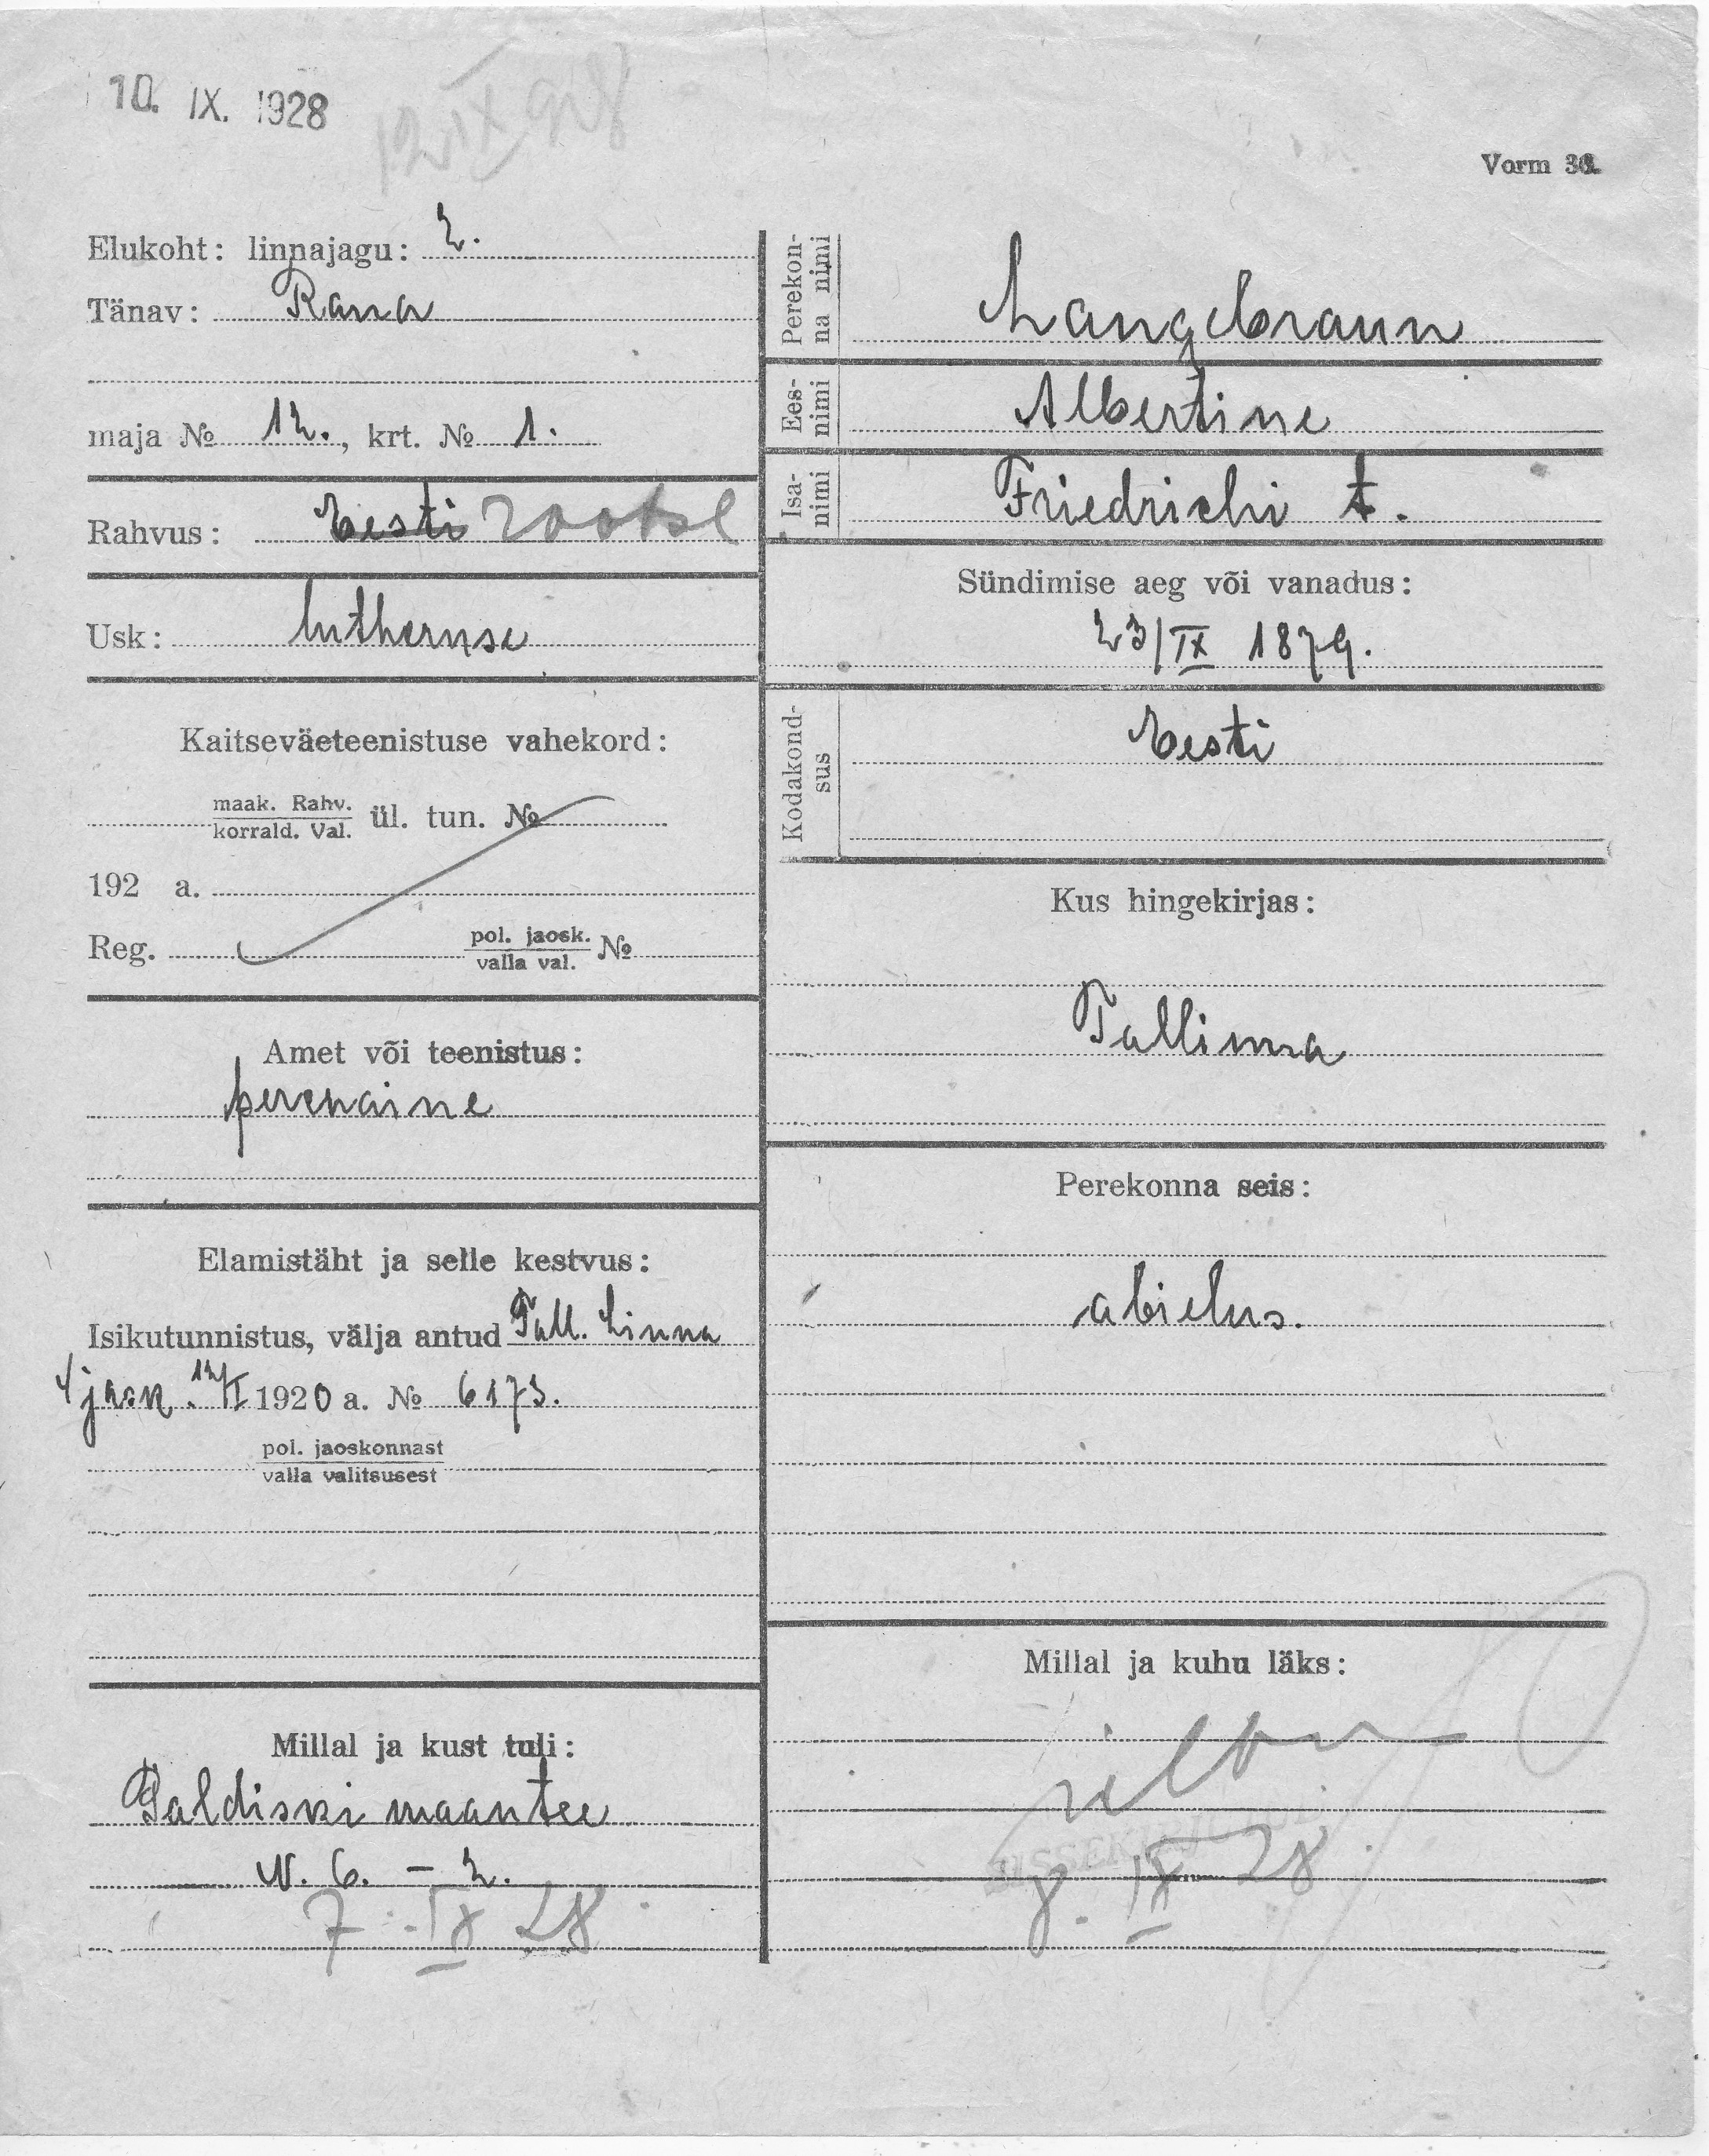 10. IX. 1928
12 IX 928
Vorm 36.
Elukoht: linnajagu: 2.
Tänav: Rana
maja № 12., krt. № 1.
Rahvus: Eesti rootsl
Usk: lutheruse
Kaitseväeteenistuse vahekord:
maak. Rahv.
korrald. Val. ül. tun. №
192 a.
Reg. pol. jaosk.
valla val. №
Amet või teenistus:
perenaine
Elamistäht ja selle kestvus:
Isikutunnistus, välja antud Tall. Linna
4 jaosk. 12/I 1920 a. № 6173.
pol. jaoskonnast
valla valitsusest
Millal ja kust tuli:
Paldiski maantee
N. 6. – 2.
7. IX 28
Perekon-
na nimi
Langebraun
Ees-
nimi
Albertine
Isa-
nimi
Friedrichi t.
Sündimise aeg või vanadus:
23/IX 1879.
Kodakond-
sus
Eesti
Kus hingekirjas:
Tallinna
Perekonna seis:
abielus.
Millal ja kuhu läks:
8. IX 28